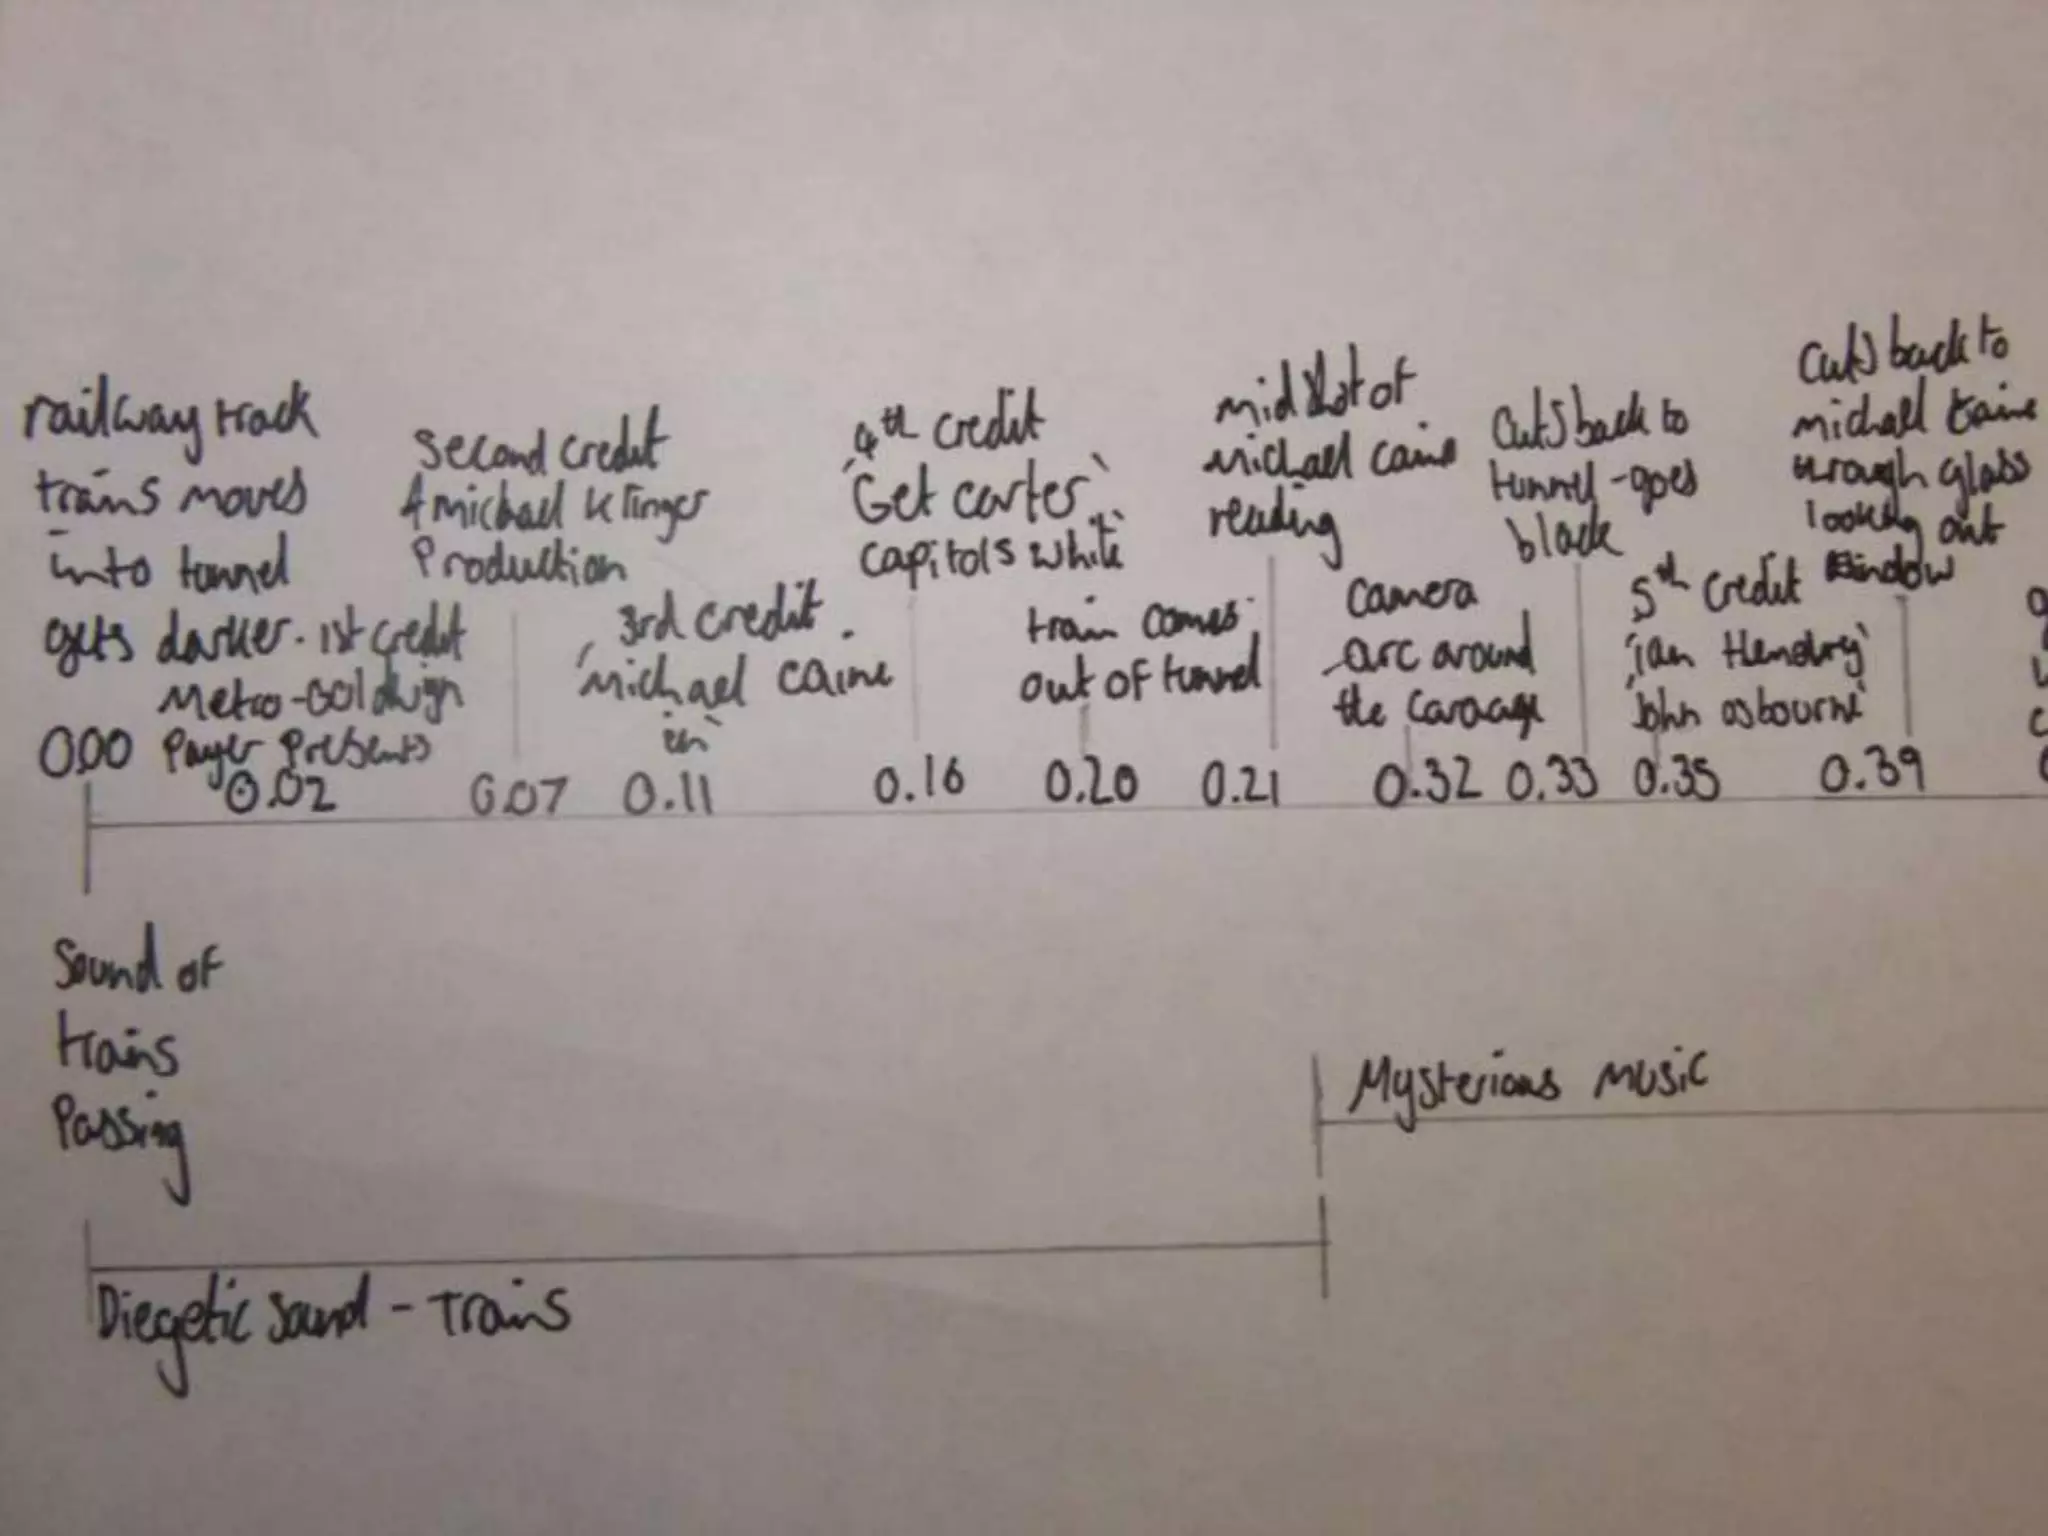 railway track
trains moves
into tunnel
gets darker. 1st credit
Metro-Goldwign
Payer Presents
0.00
0.02
Second credit
A michael Klinger
Production
0.07
3rd credit.
'michael caine
in'
0.11
4th credit
'Get carter'
capitols white
0.16
train comes
out of tunnel
0.20
mid shot of
michael caine
reading
0.21
camera
arc around
the
0.32
Cuts back to
tunnel - goes
black
0.33
5th credit
'ian Hendry'
'John osbourne'
0.35
Cuts back to
michael caine
through glass
looking out
window
0.39
Sound of
trains
Passing
Mysterious music
Diegetic sound - Trains